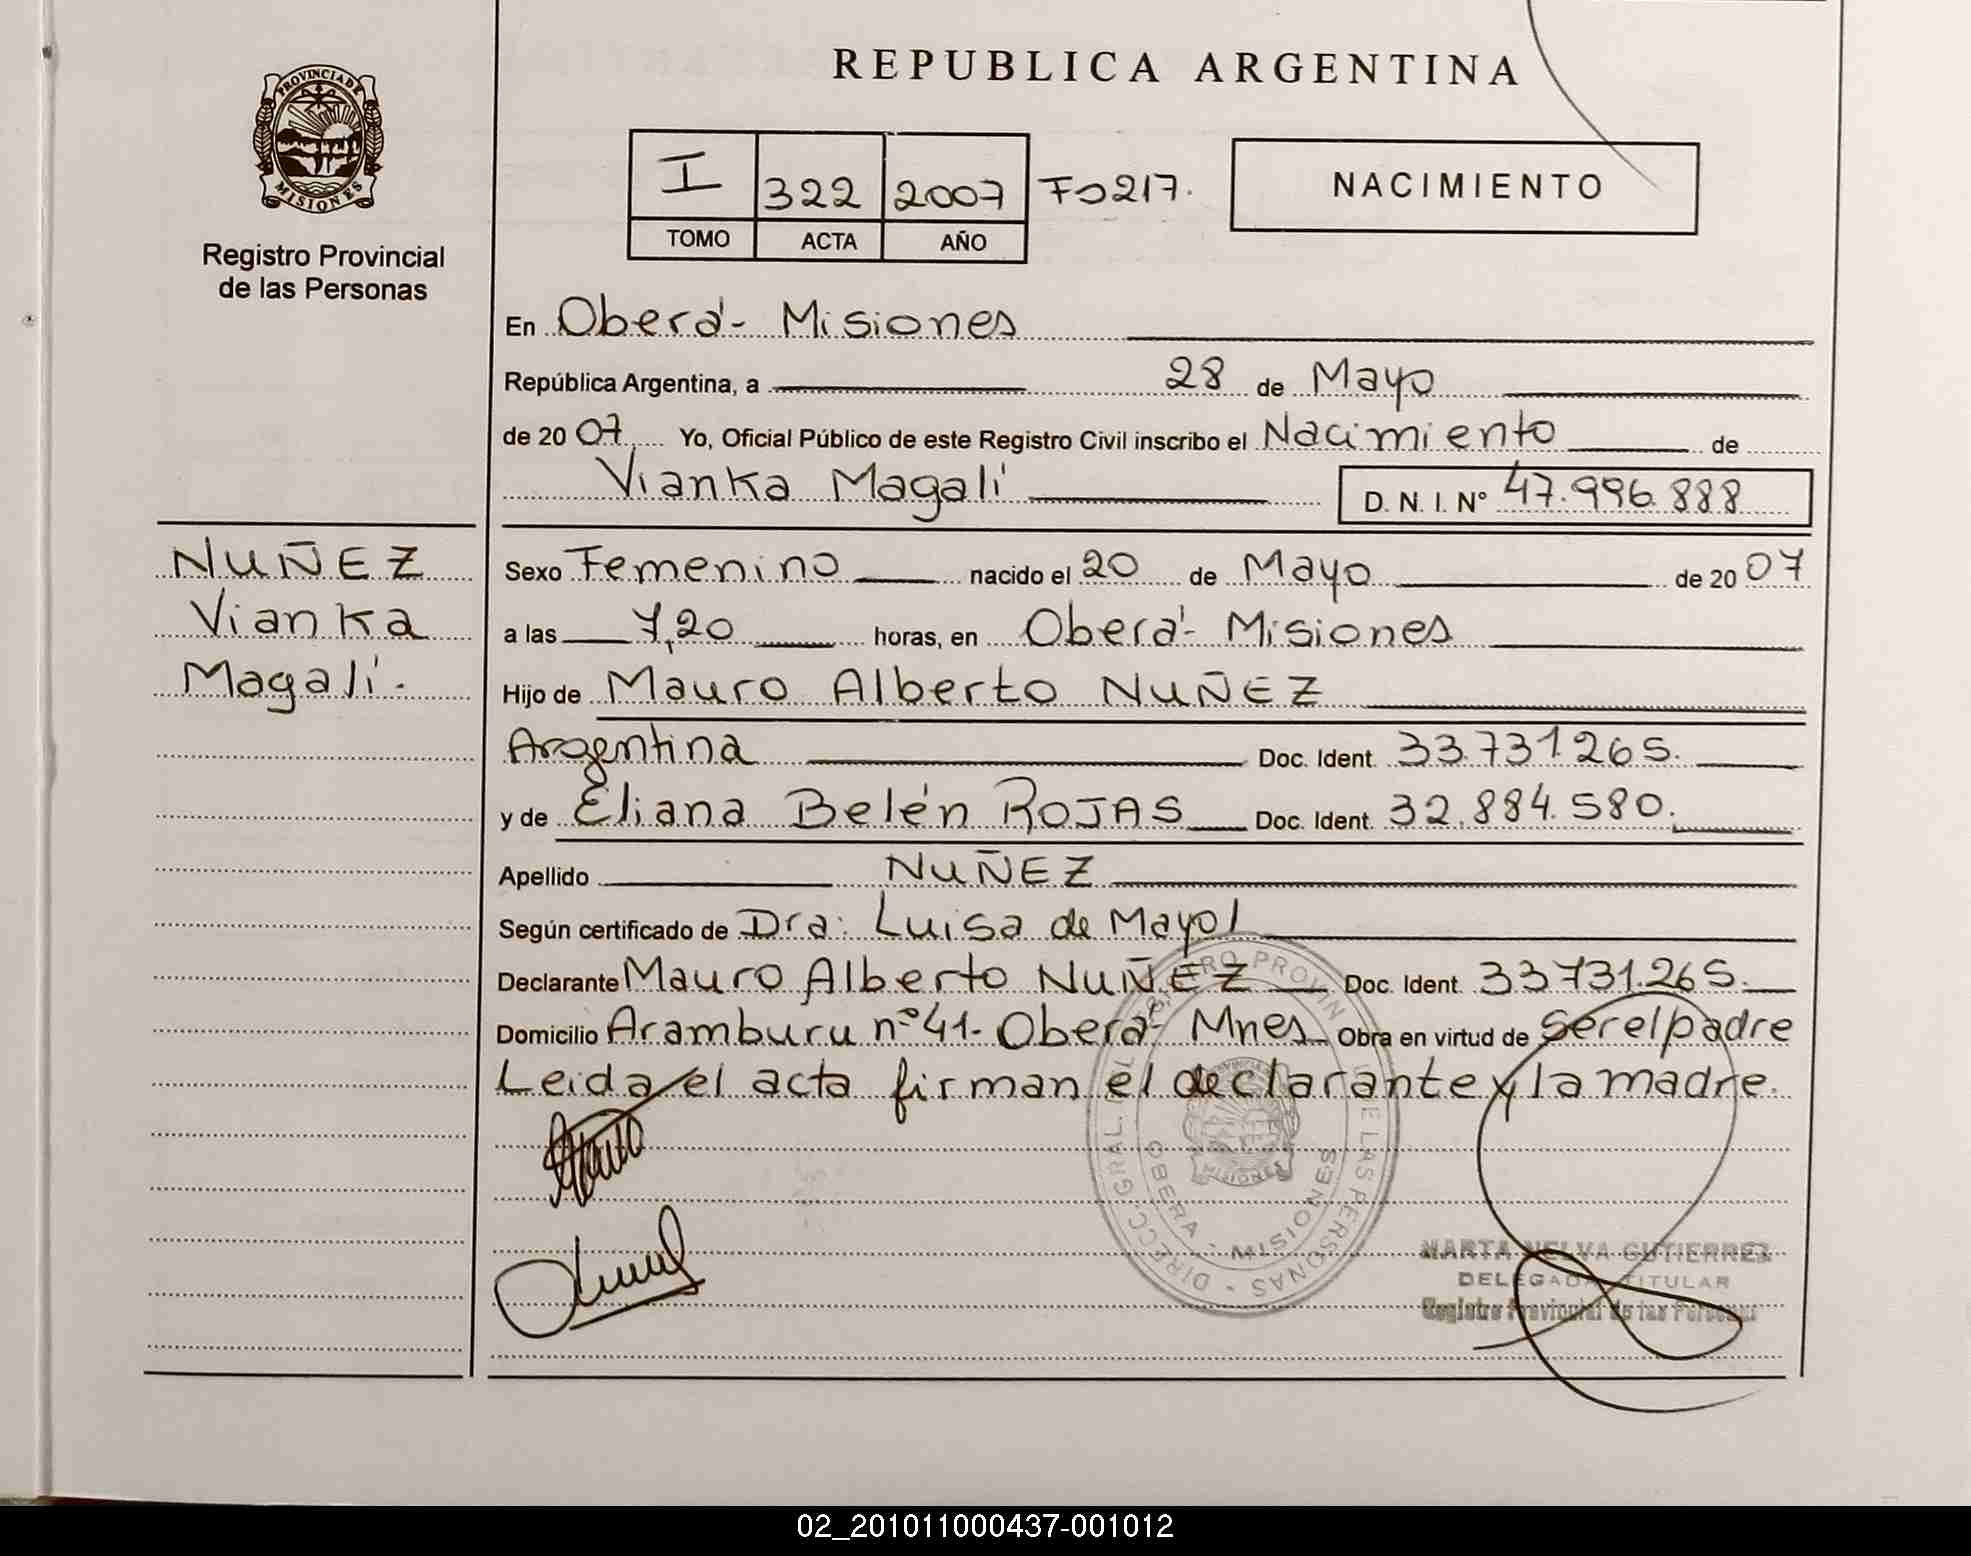 REPUBLICA ARGENTINA
PROVINCIA DE
MISIONES
Registro Provincial
de las Personas
I 322 2007 Fo 217.
TOMO ACTA AÑO
NACIMIENTO
En Oberá - Misiones
República Argentina, a 28 de Mayo
de 20 07 Yo, Oficial Público de este Registro Civil inscribo el Nacimiento de
Vianka Magalí D. N. I. N° 47.996.888
NUÑEZ
Vianka
Magalí.
Sexo Femenino nacido el 20 de Mayo de 20 07
a las 7,20 horas, en Oberá - Misiones
Hijo de Mauro Alberto NUÑEZ
Argentina Doc. Ident. 33.731265.
y de Eliana Belén ROJAS Doc. Ident. 32.884.580.
Apellido NUÑEZ
Según certificado de Dra: Luisa de Mayol
Declarante Mauro Alberto NUÑEZ Doc. Ident. 33731.265.
Domicilio Aramburu n° 41- Oberá - Mnes Obra en virtud de ser el padre
Leida el acta firman el declarante y la madre.
DIRECC. GRAL. DEL REGISTRO PROVINCIAL DE LAS PERSONAS -
OBERA - MISIONES
MISIONES
MARTA NELVA GUTIERREZ
DELEGADA TITULAR
Registro Provincial de las Personas
02_201011000437-001012